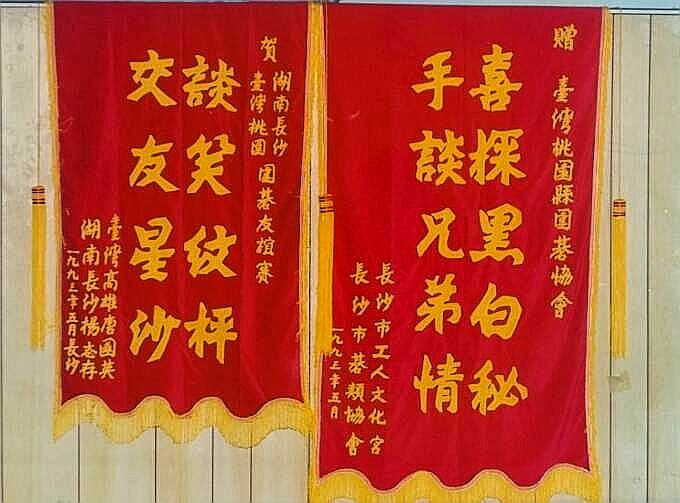 贈 臺灣桃園縣囯碁協會
喜探黑白秘
手談兄弟情
長沙市工人文化宮
長沙市碁類協會
一九九三年五月
賀 湖南長沙
臺灣桃園 囯碁友誼賽
談笑紋枰
交友星沙
臺灣高雄唐国英
湖南長沙楊志存
一九九三年五月長沙